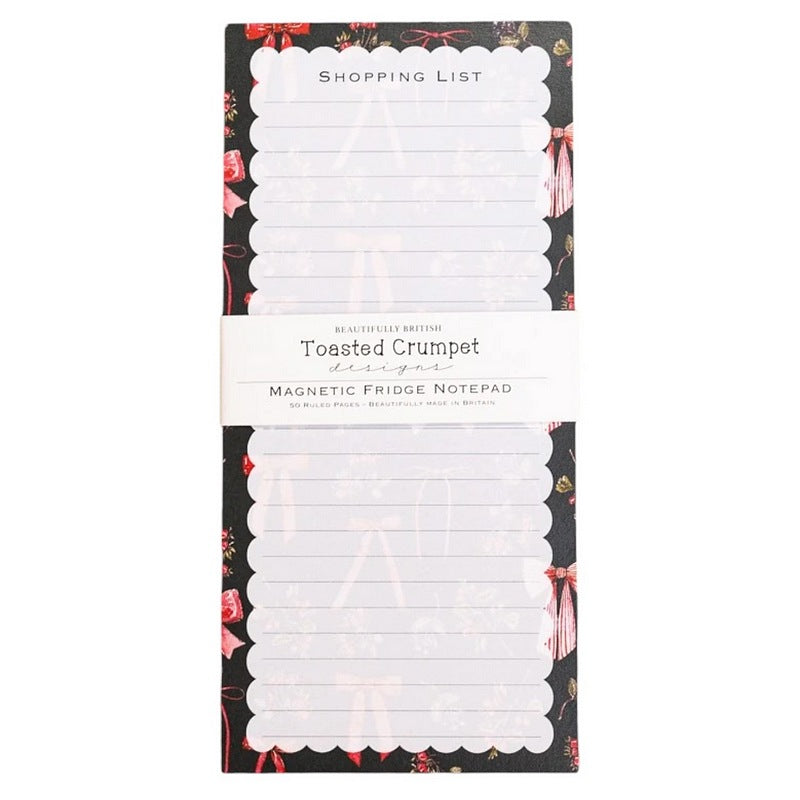 SHOPPING LIST
BEAUTIFULLY BRITISH
Toasted Crumpet
designs
MAGNETIC FRIDGE NOTEPAD
50 RULED PAGES - BEAUTIFULLY MADE IN BRITAIN